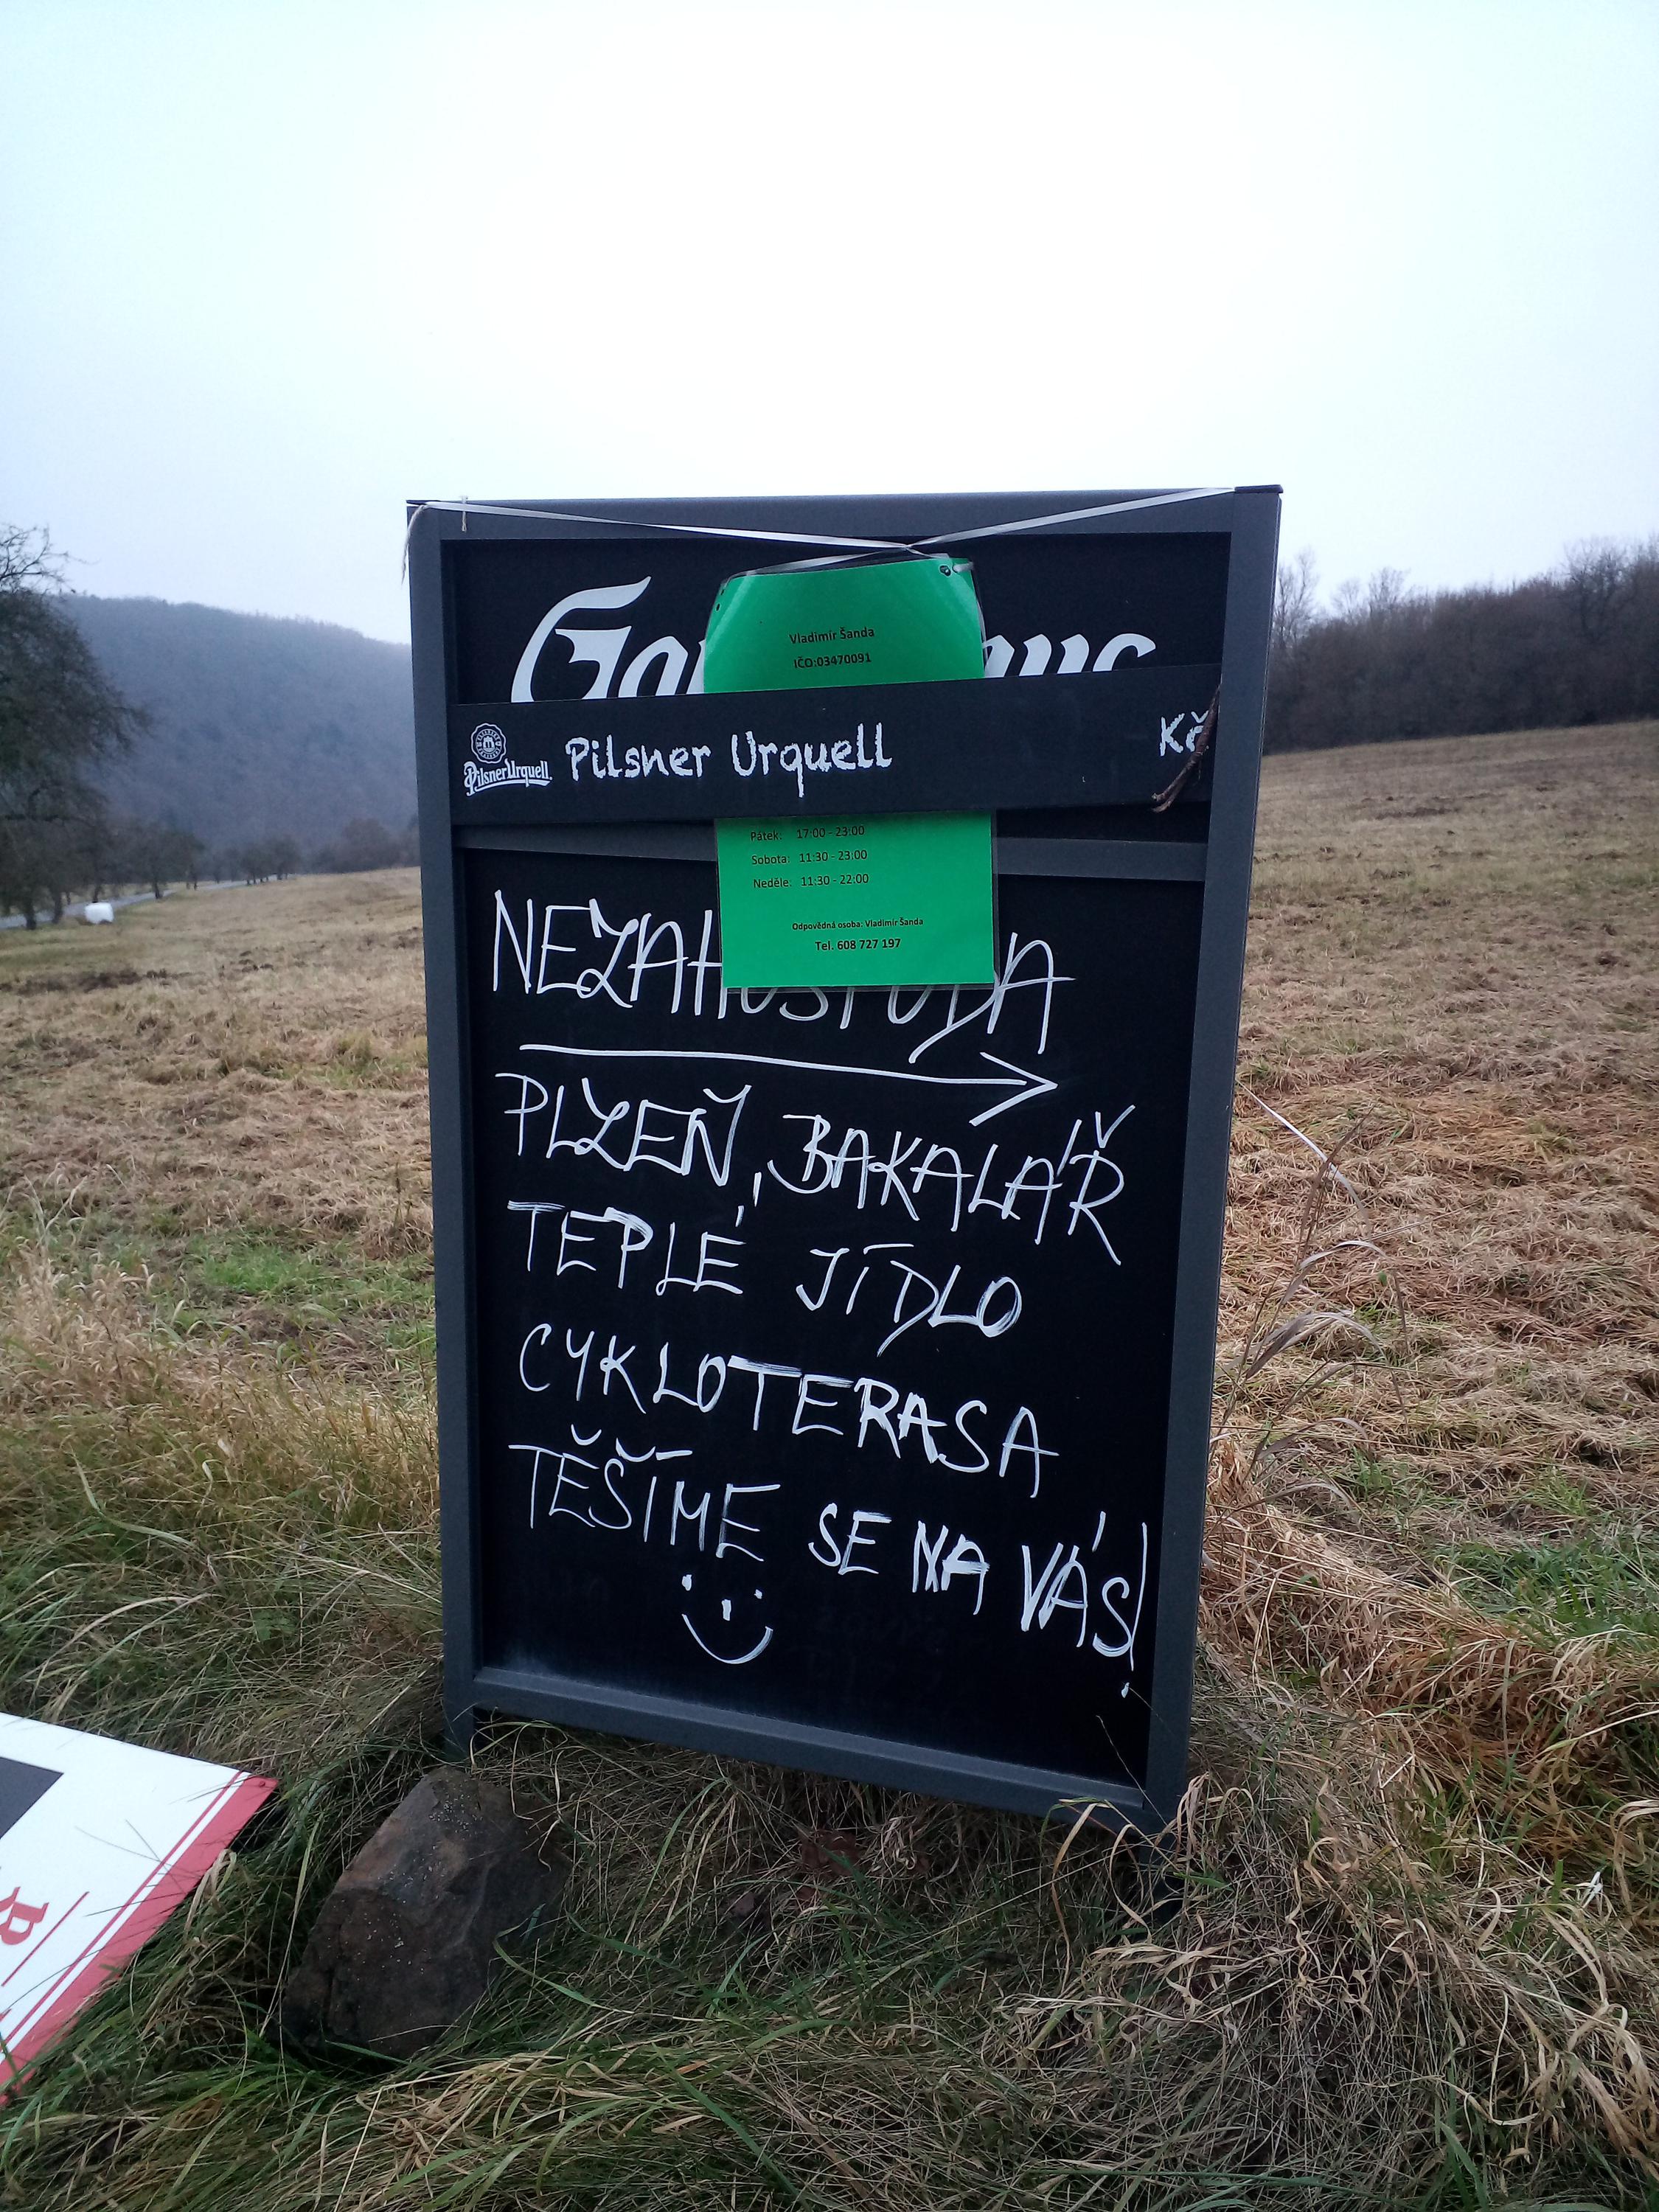 Vladimír Šanda
IČO:03470091
Pilsner Urquell Pilsner Urquell Kč
Pátek: 17:00 - 23:00
Sobota: 11:30 - 23:00
Neděle: 11:30 - 22:00
Odpovědná osoba: Vladimír Šanda
Tel. 608 727 197
NEZAHOSPODA
PLZEŇ, BAKALÁŘ
TEPLÉ JÍDLO
CYKLOTERASA
TĚŠÍME SE NA VÁS!